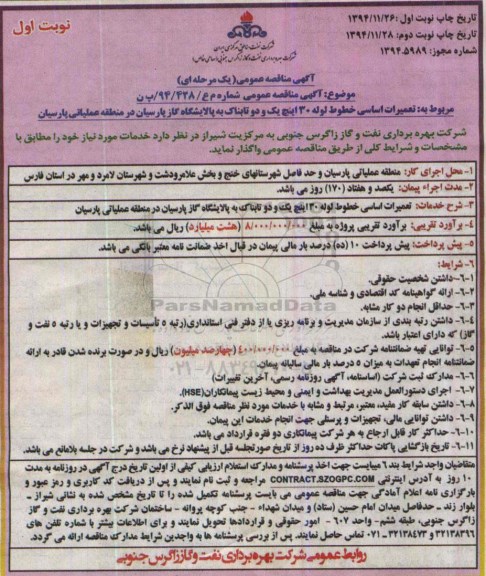 تاریخ چاپ نوبت اول :۱۳۹۴/۱۱/۲۶
تاریخ چاپ نوبت دوم: ۱۳۹۴/۱۱/۲۸
شماره مجوز: ۱۳۹۴.۵۹۸۹
نوبت اول
شرکت نفت مناطق مرکزی ایران
شرکت بهره برداری نفت و گاز زاگرس جنوبی (سهامی خاص)
آگهی مناقصه عمومی(یک مرحله ای)
موضوع:آگهی مناقصه عمومی شماره م ع/۹۴/۴۲۸/پ ن
مربوط به: تعمیرات اساسی خطوط لوله ۳۰ اینچ یک و دو تابناک به پالایشگاه گاز پارسیان در منطقه عملیاتی پارسیان
شرکت بهره برداری نفت و گاز زاگرس جنوبی به مرکزیت شیراز در نظر دارد خدمات مورد نیاز خود را مطابق با
مشخصات و شرایط کلی از طریق مناقصه عمومی واگذار نماید.
۱- محل اجرای کار: منطقه عملیاتی پارسیان و حد فاصل شهرستانهای خنج و بخش علامرودشت و شهرستان لامرد و مهر در استان فارس
۲- مدت اجراء پیمان: یکصد و هفتاد (۱۷۰) روز می باشد.
۳- شرح خدمات: تعمیرات اساسی خطوط لوله ۳۰ اینچ یک و دو تابناک به پالایشگاه گاز پارسیان در منطقه عملیاتی پارسیان
۴- برآورد تقریبی: برآورد تقریبی پروژه به مبلغ ۸/۰۰۰/۰۰۰/۰۰۰ (هشت میلیارد) ریال می باشد.
۵- پیش پرداخت: پیش پرداخت ۱۰ (ده) درصد بار مالی پیمان در قبال اخذ ضمانت نامه معتبر بانکی می باشد.
۶- شرایط:
۶-۱-داشتن شخصیت حقوقی.
۶-۲- ارائه گواهینامه کد اقتصادی و شناسه ملی.
۶-۳- حداقل انجام دو کار مشابه.
۶-۴- داشتن رتبه بندی از سازمان مدیریت و برنامه ریزی یا از دفتر فنی استانداری(رتبه ۵ تأسیسات و تجهیزات و یا رتبه ۵ نفت و
گاز) که دارای اعتبار باشد.
۶-۵- توانایی تهیه ضمانتنامه شرکت در مناقصه به مبلغ ۴۰۰/۰۰۰/۰۰۰ (چهارصد میلیون) ریال و در صورت برنده شدن قادر به ارائه
ضمانتنامه انجام تعهدات به میزان ۵ درصد بار مالی سالیانه پیمان.
۶-۶- مدارک ثبت شرکت (اساسنامه، آگهی روزنامه رسمی، آخرین تغییرات)
۶-۷- اجرای دستورالعمل مدیریت بهداشت و ایمنی و محیط زیست پیمانکاران(HSE).
۶-۸- داشتن سابقه کار مفید، معتبر، مرتبط و مشابه با خدمات مورد نظر مناقصه فوق الذکر.
۶-۹- داشتن توانایی مالی، تجهیزات و پرسنلی جهت انجام خدمات این پیمان.
۶-۱۰- حداکثر کار قابل ارجاع به هر شرکت پیمانکاری دو فقره قرارداد می باشد.
۶-۱۱- تاریخ بازگشایی پاکات حداکثر ظرف ده روز از تاریخ صورتجلسه قبل از پیشنهاد نرخ می باشد و شرکت در جلسه بلامانع می باشد.
ParsNamadData
متقاضیان واجد شرایط بند ۶ میبایست جهت اخذ پرسشنامه و مدارک استعلام ارزیابی کیفی از اولین تاریخ درج آگهی در روزنامه به مدت
۱۰ روز به آدرس اینترنتی CONTRACT.SZOGPC.COM مراجعه و ثبت نام نمایند و پس از دریافت کد کاربری و رمز عبور و
بارگزاری نامه اعلام آمادگی جهت مناقصه عمومی می بایست پرسشنامه تکمیل شده را تا تاریخ مشخص شده به نشانی شیراز -
بلوار زند - حدفاصل میدان امام حسین (ستاد) و میدان شهداء - جنب کوچه پروانه - ساختمان شرکت بهره برداری نفت و گاز
زاگرس جنوبی، طبقه ششم - واحد ۶۰۷ - امور حقوقی و قراردادها تحویل نمایند و برای اطلاعات بیشتر با شماره تلفن های
۳۲۱۳۸۳۹۶ و ۳۲۱۳۸۴۷۳-۰۷۱ تماس حاصل نمایند. پس از بررسی پرسشنامه ها به واجدین شرایط مدارک مناقصه ارائه می گردد.
روابط عمومی شرکت بهره برداری نفت و گاز زاگرس جنوبی